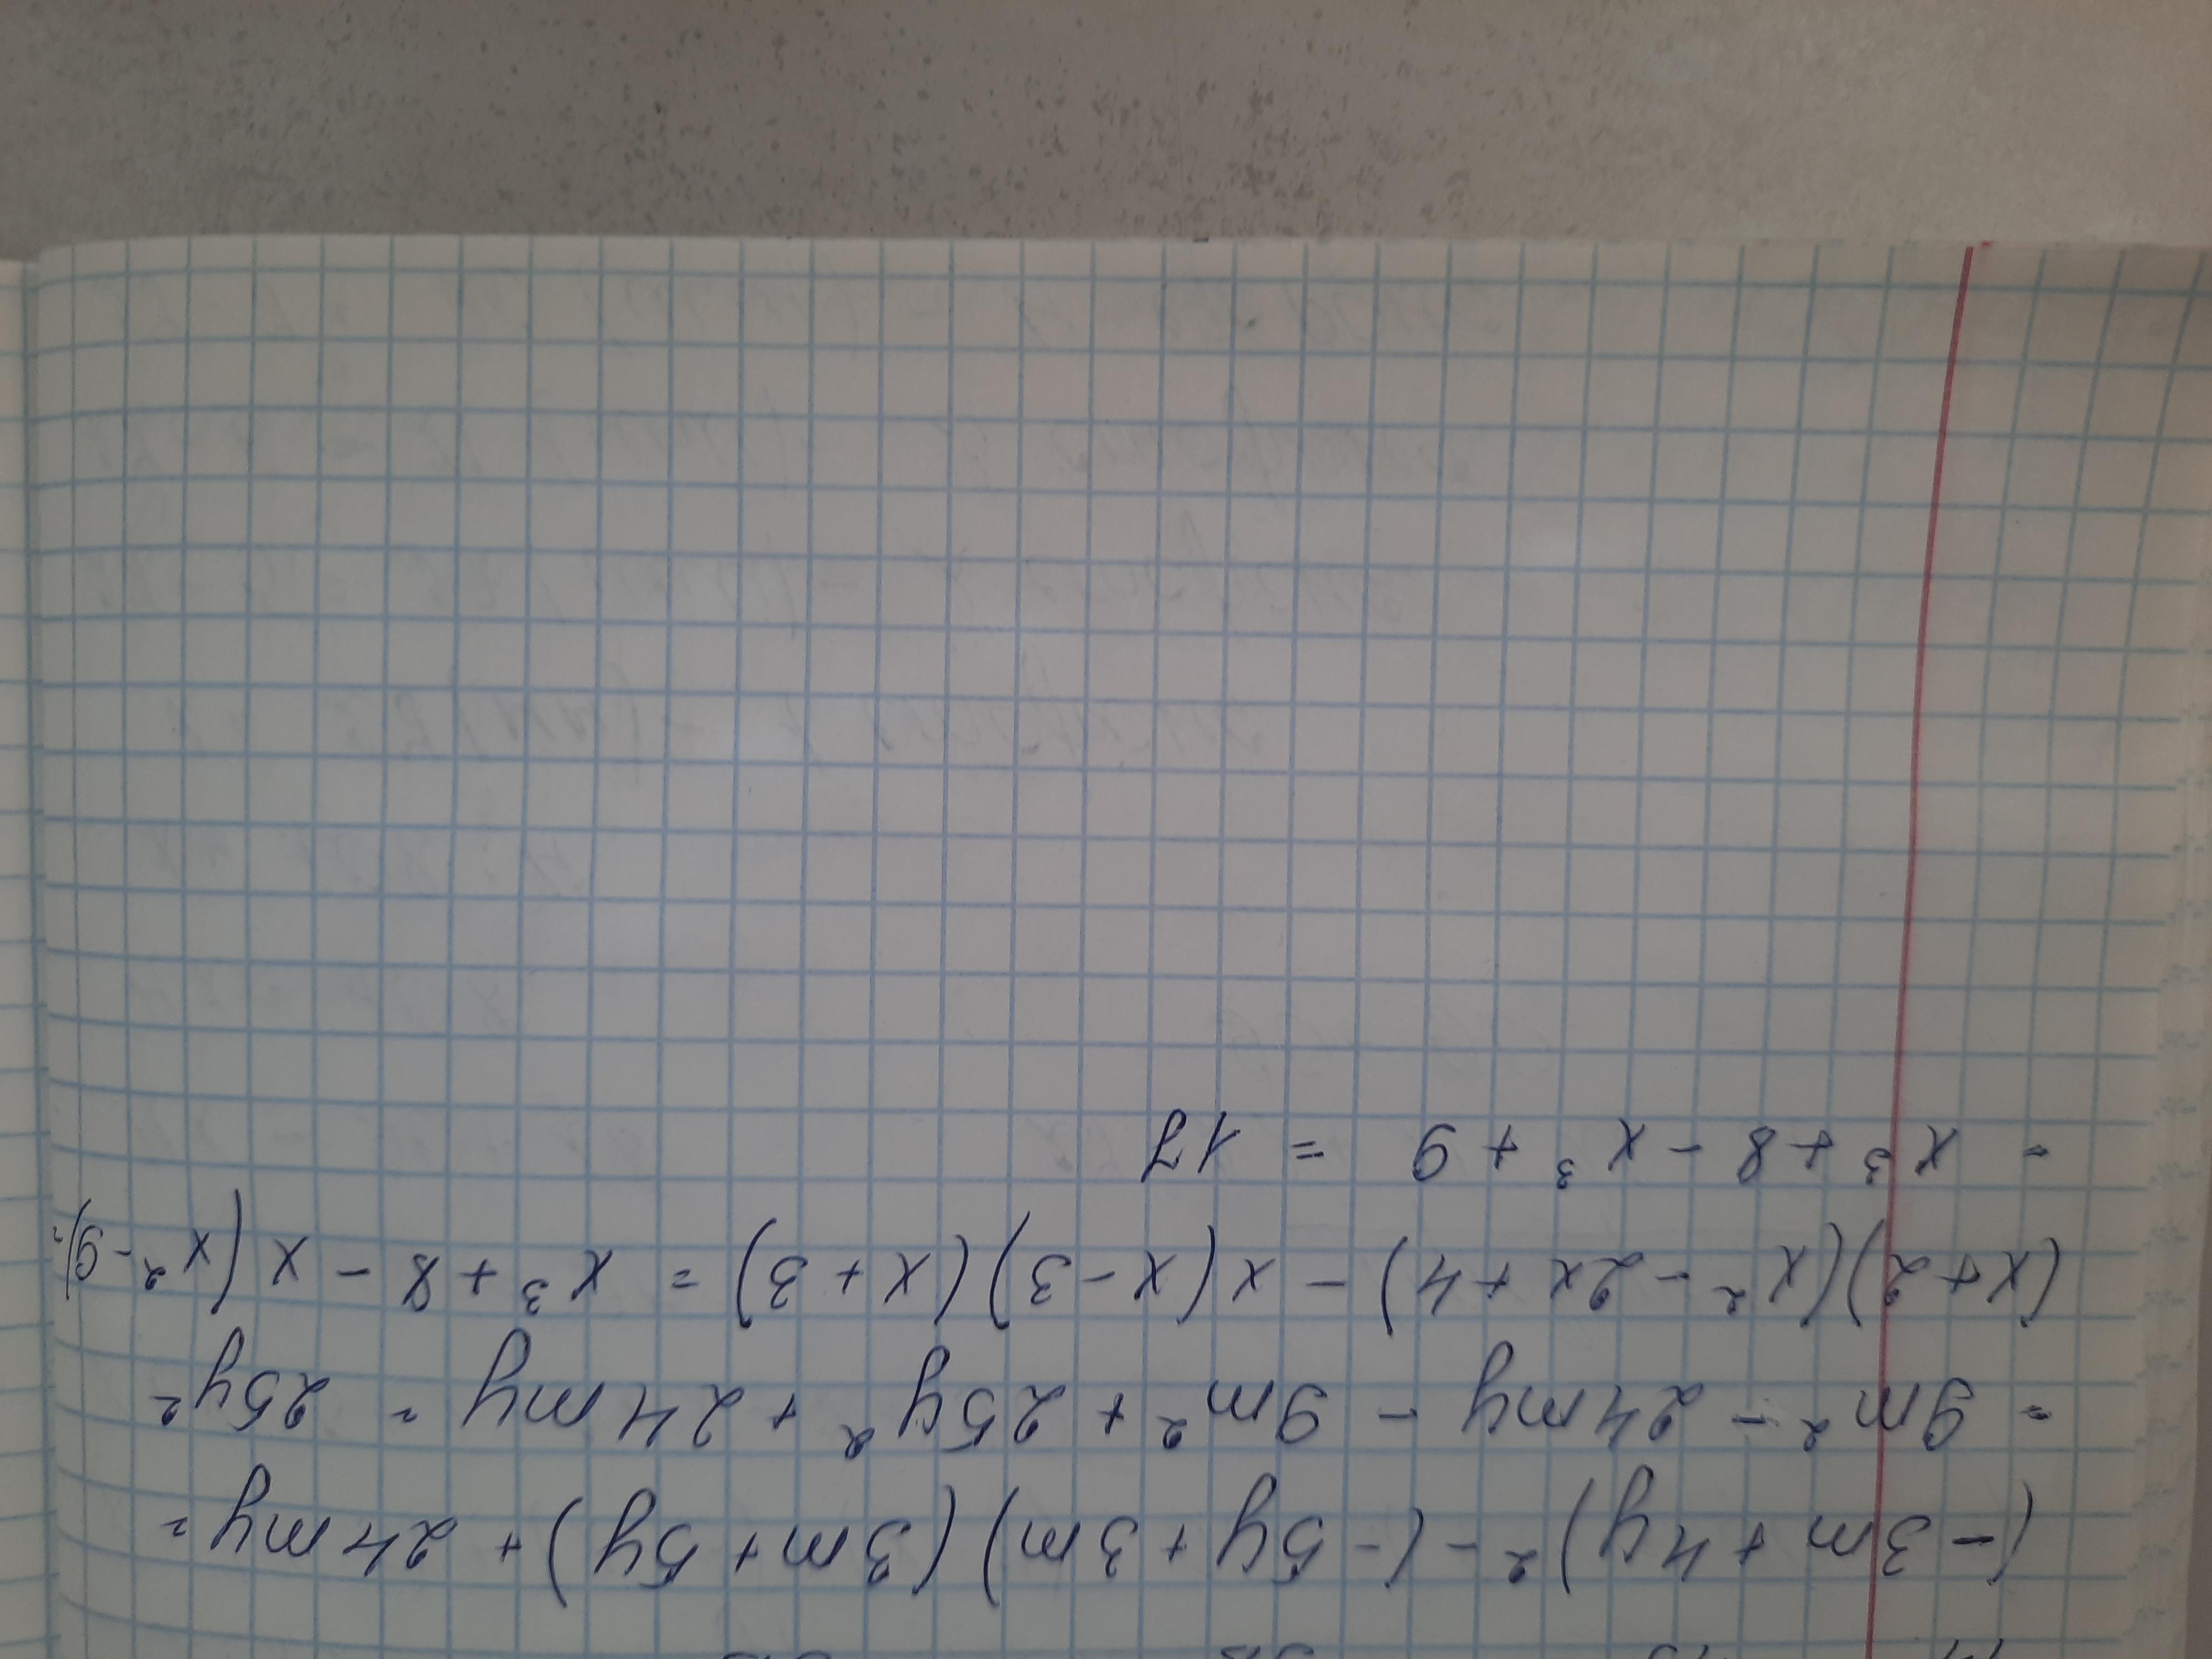 (-3m+4y)²-(-5y+3m)(3m+5y)+24my=
=9m²-24my-9m²+25y²+24my=25y²
(x+2)(x²-2x+4)-x(x-3)(x+3)=x³+8-x(x²-9)=
=x³+8-x³+9=17